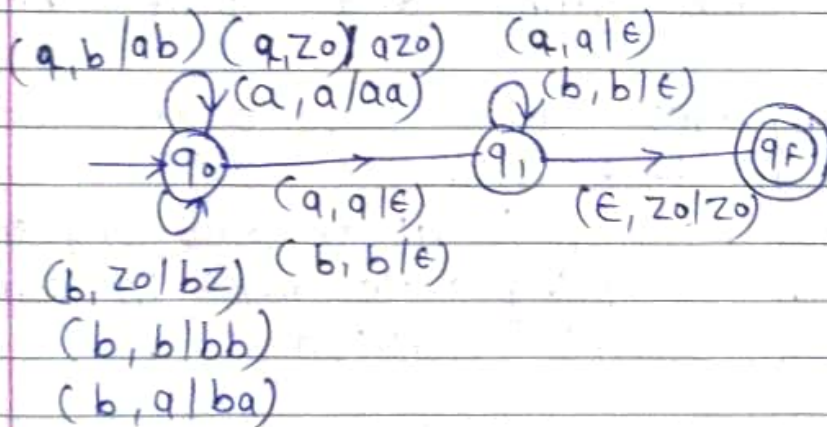 (a, b/ab) (a, z0/ az0) (a, a/ε)
(a, a/aa) (b, b/ε)
q0 q1 qf
(a, a/ε) (ε, z0/z0)
(b, z0/bz) (b, b/ε)
(b, b/bb)
(b, a/ba)